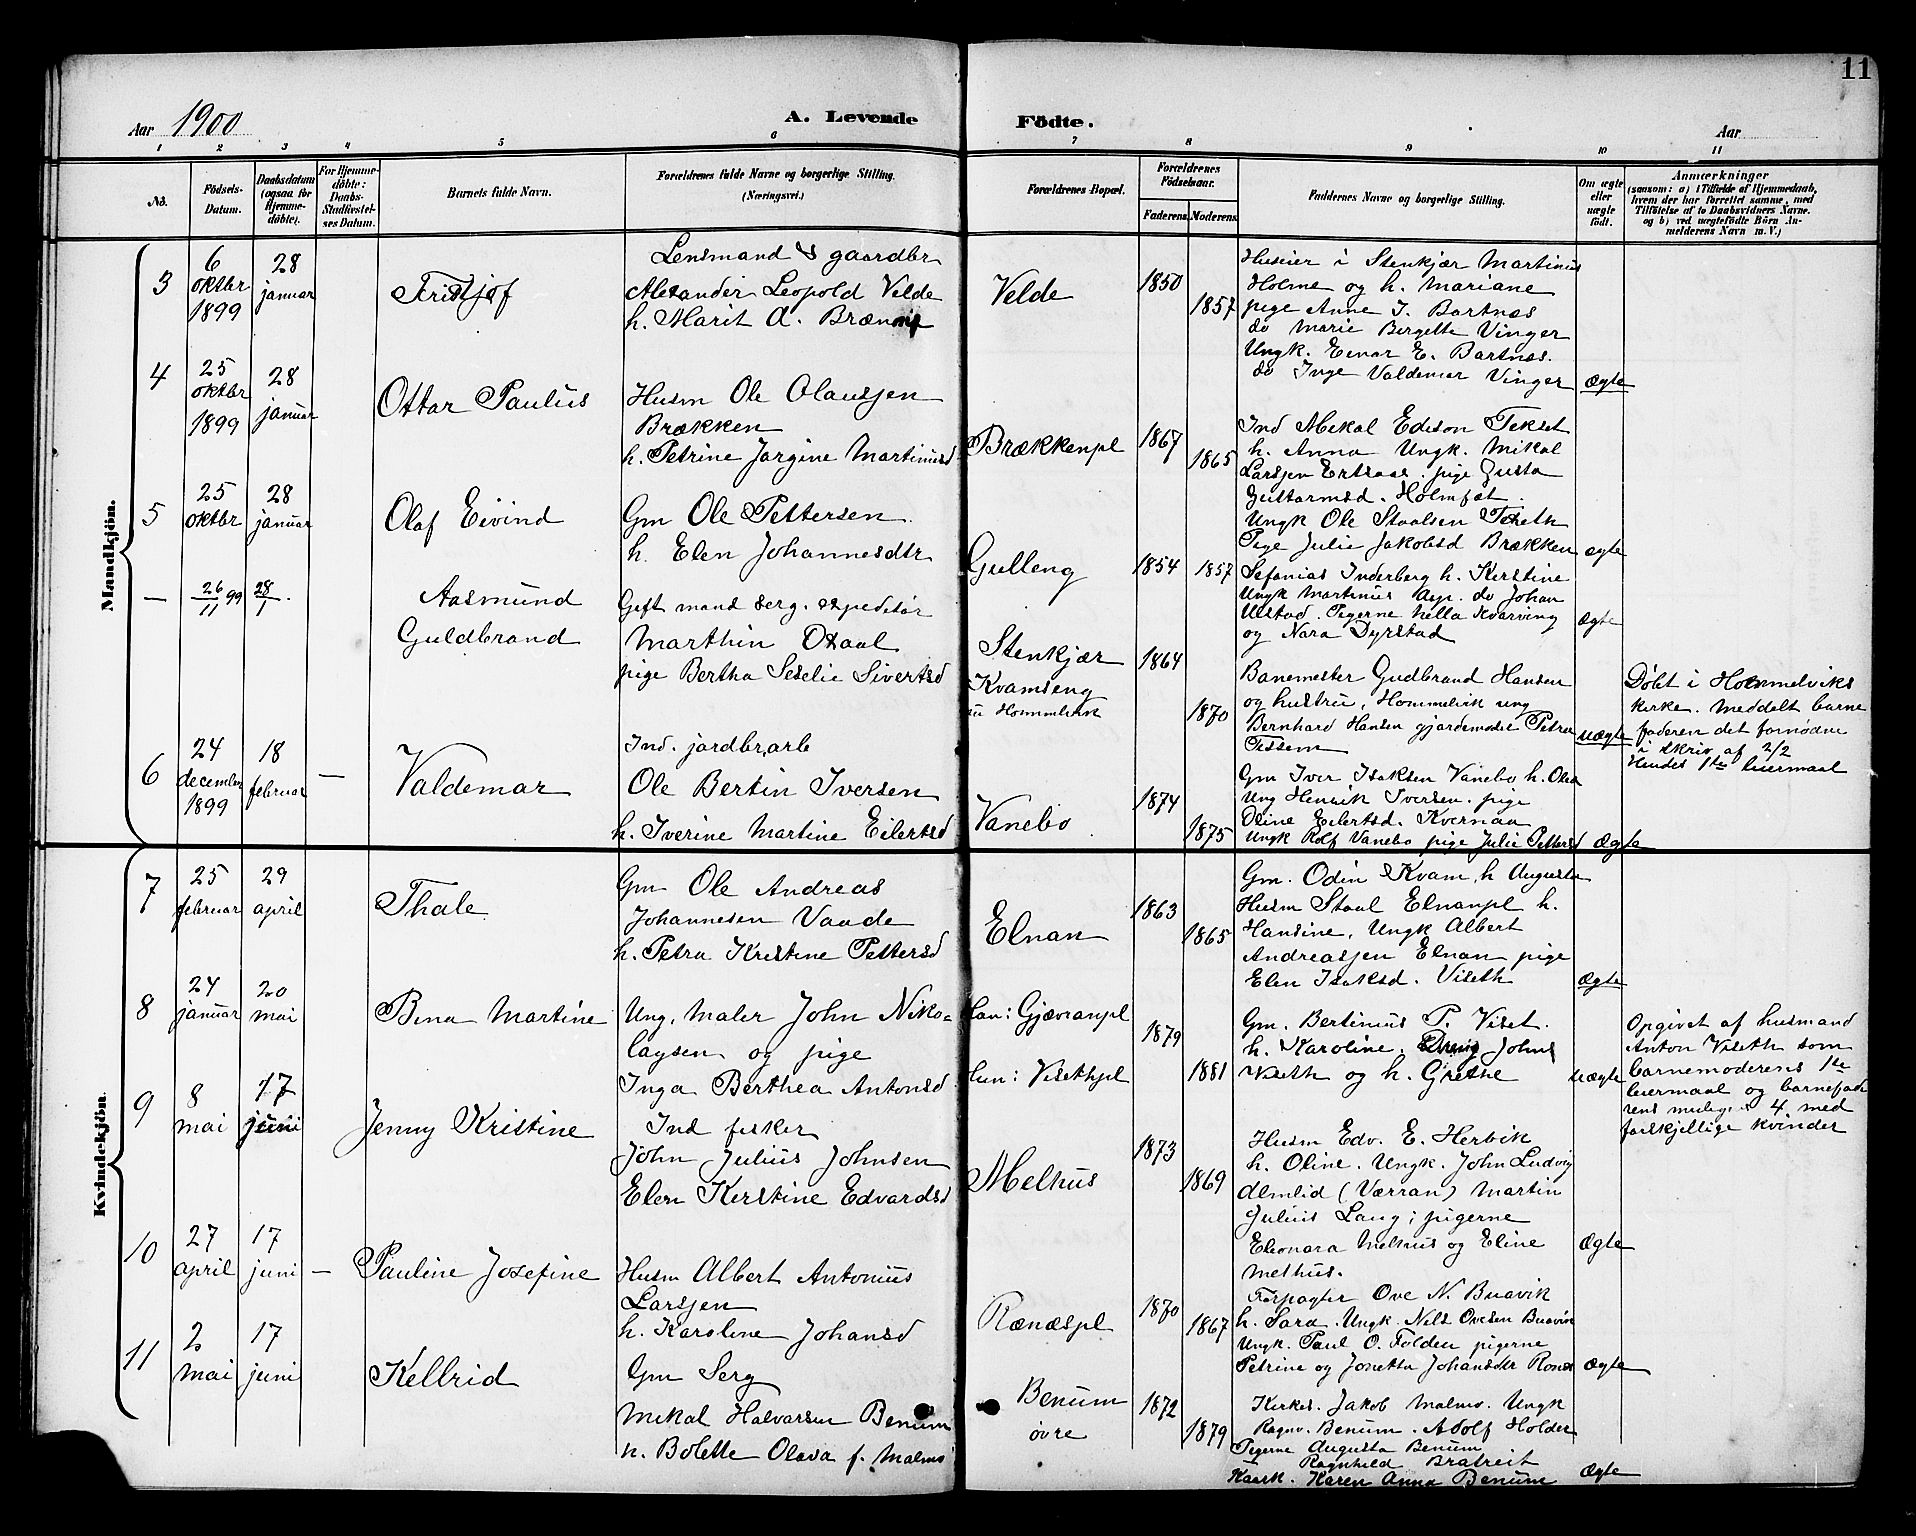 11
Aar 1900
A. Levende Födte.
Aar
1 2 3 4 5 6 7 8 9 10 11
No.
Födsels-Datum.
Daabsdatum (ogsaa for Hjemme-döbte).
For Hjemme-döbte: Daabs-Stadfæstelses Datum.
Barnets fulde Navn.
Forældrenes fulde Navne og borgerlige Stilling. (Næringsvei.)
Forældrenes Bopæl.
Forældrenes Födselsaar.
Faderens. Moderens.
Faddernes Navne og borgerlige Stilling.
Om ægte eller uægte födt.
Anmærkninger
(saasom: a) i Tilfælde af Hjemmedaab,
hvem der har forrettet samme, med
Tilföielse af to Daabsvidners Navne.
og b) ved uægtefödte Börn An-
melderens Navn m. V.)
Mandkjön.
3
6 oktbr 1899
28 januar
Fridtjof
Lensmand & gaardbr
Alexander Leopold Velde
h. Marit A.
Velde
1850
1857
Huseier i Stenkjær Martinus
Holme og h. Mariane
pige Anne J. Bartnæs
do Marie Bergette Vinger
Ungk. Einar E. Bartnæs.
do Inge Valdemar Vinger
Ægte
4
25 oktbr 1899
28 januar
Ottar Paulus
Husm Ole Olaussen
Brækken
h. Petrine Jørgine Martinusd
Brækkenpl
1867
1865
Ind Mikal Edison Tekset
h. Anna Ungk. Mikal
Larssen pige Gusta
Holmset.
Ungk Ole Staalsen
Pige Julie Jakobsd Brækken
ægte
5
25 oktbr
28 januar
Olaf Eivind
Gm Ole Pettersen
h. Elen Johannesdtr
Gulleng
1854
1857
Sefanias Inderberg h. Kirstine
Ungk Martinus Asp. do Johan
Ulstad. Pigerne Nella Kvarving
og Nora Dyrstad
Ægte
—
26/11 99
28/1.
Aasmund
Guldbrand
Gift mand serg. expeditør
Marthin Oxaal
pige Bertha Seselie Sivertsd
Stenkjær
Kvamseng
Hommelvik
1864
1870
Banemester Gudbrand Hansen
og hustru, Hommelvik ung
Bernhard Hansen gjordemoder Petra
Tessem
uægte
Døbt i Hommelviks
kirke. Meddelt barne
faderen det fornødne
i skriv af 2/2
Hendes 1ste leiermaal
6
24 december 1899
18 februar
—
Valdemar
Ind. jardbr.arb
Ole Bertin Iversen
h. Iverine Martine Eilertsd
Vanebo
1874
1875
Gm Iver Isaksen Vanebo h. Olea
Ung Henrik Iversen. pige
Oline Eilertsd. Kvernaa
Ungk Rolf Vanebo pige Julie Pettersd
Ægte
Kvindekjön.
7
25 februar
29 april
Thale
Gm Ole Andreas
Johannesen Vaade
h. Petra Kristine Pettersd
Elnan
1863
1865
Gm. Odin Kvam, h Augusta
Husm Staal Elnanpl h.
Hansine, Ungk Albert
Andreassen Elnan pige
Elen Isaksd. Viseth
Ægte
8
24 januar
20 mai
Bina Martine
Ung. maler John Niko=
laysen og pige
Inga Berthea Antonsd
han: Gjævranpl
hun: Visethpl
1879
1881
Gm. Bertinius P. Viset.
h. Karoline. Dreng Johns
Viseth og h. Grethe
uægte
Opgivet af husmand
Anton Viseth som
barnemoderens 1ste
leiermaal og barnefade
rens mulige 4. med
forskjellige kvinder
9
8 mai
17 juni
Jenny Kristine
Ind fisker
John Julius Johnsen
Elen Kirstine Edvardsd
Melhus
1873
1869
Husm Edv. E. Hervik
h. Oline. Ungk. John Ludvig
Almlid (Værran) Martin
Julius Laug; pigerne
Eleonara Melhus og Eline
Melhus.
Ægte
10
27 april
17 juni
—
Pauline Josefine
Husm Albert Antonius
Larssen
h. Karoline Johansd
Rænæspl
1870
1867
Forpagter Ove N. Buavik
h. Sara. Ungk. Nils Ovesen Buavik
Ungk. Paul O. Folden pigerne
Petrine og Jonetta Johansdtr
Ægte
11
2 mai
17 juni
Kellrid
Gm Serg
Mikal Halvarsen Benum
h. Bolette Olava f. Malmo
Benum
øvre
1872
1879
Kirkes. Jakob Malmo. Ungk
Ragnv. Benum. Adolf Holder
Pigerne Augusta Benum
Ragnhild Bratreit
Karen Anna Benum
Ægte